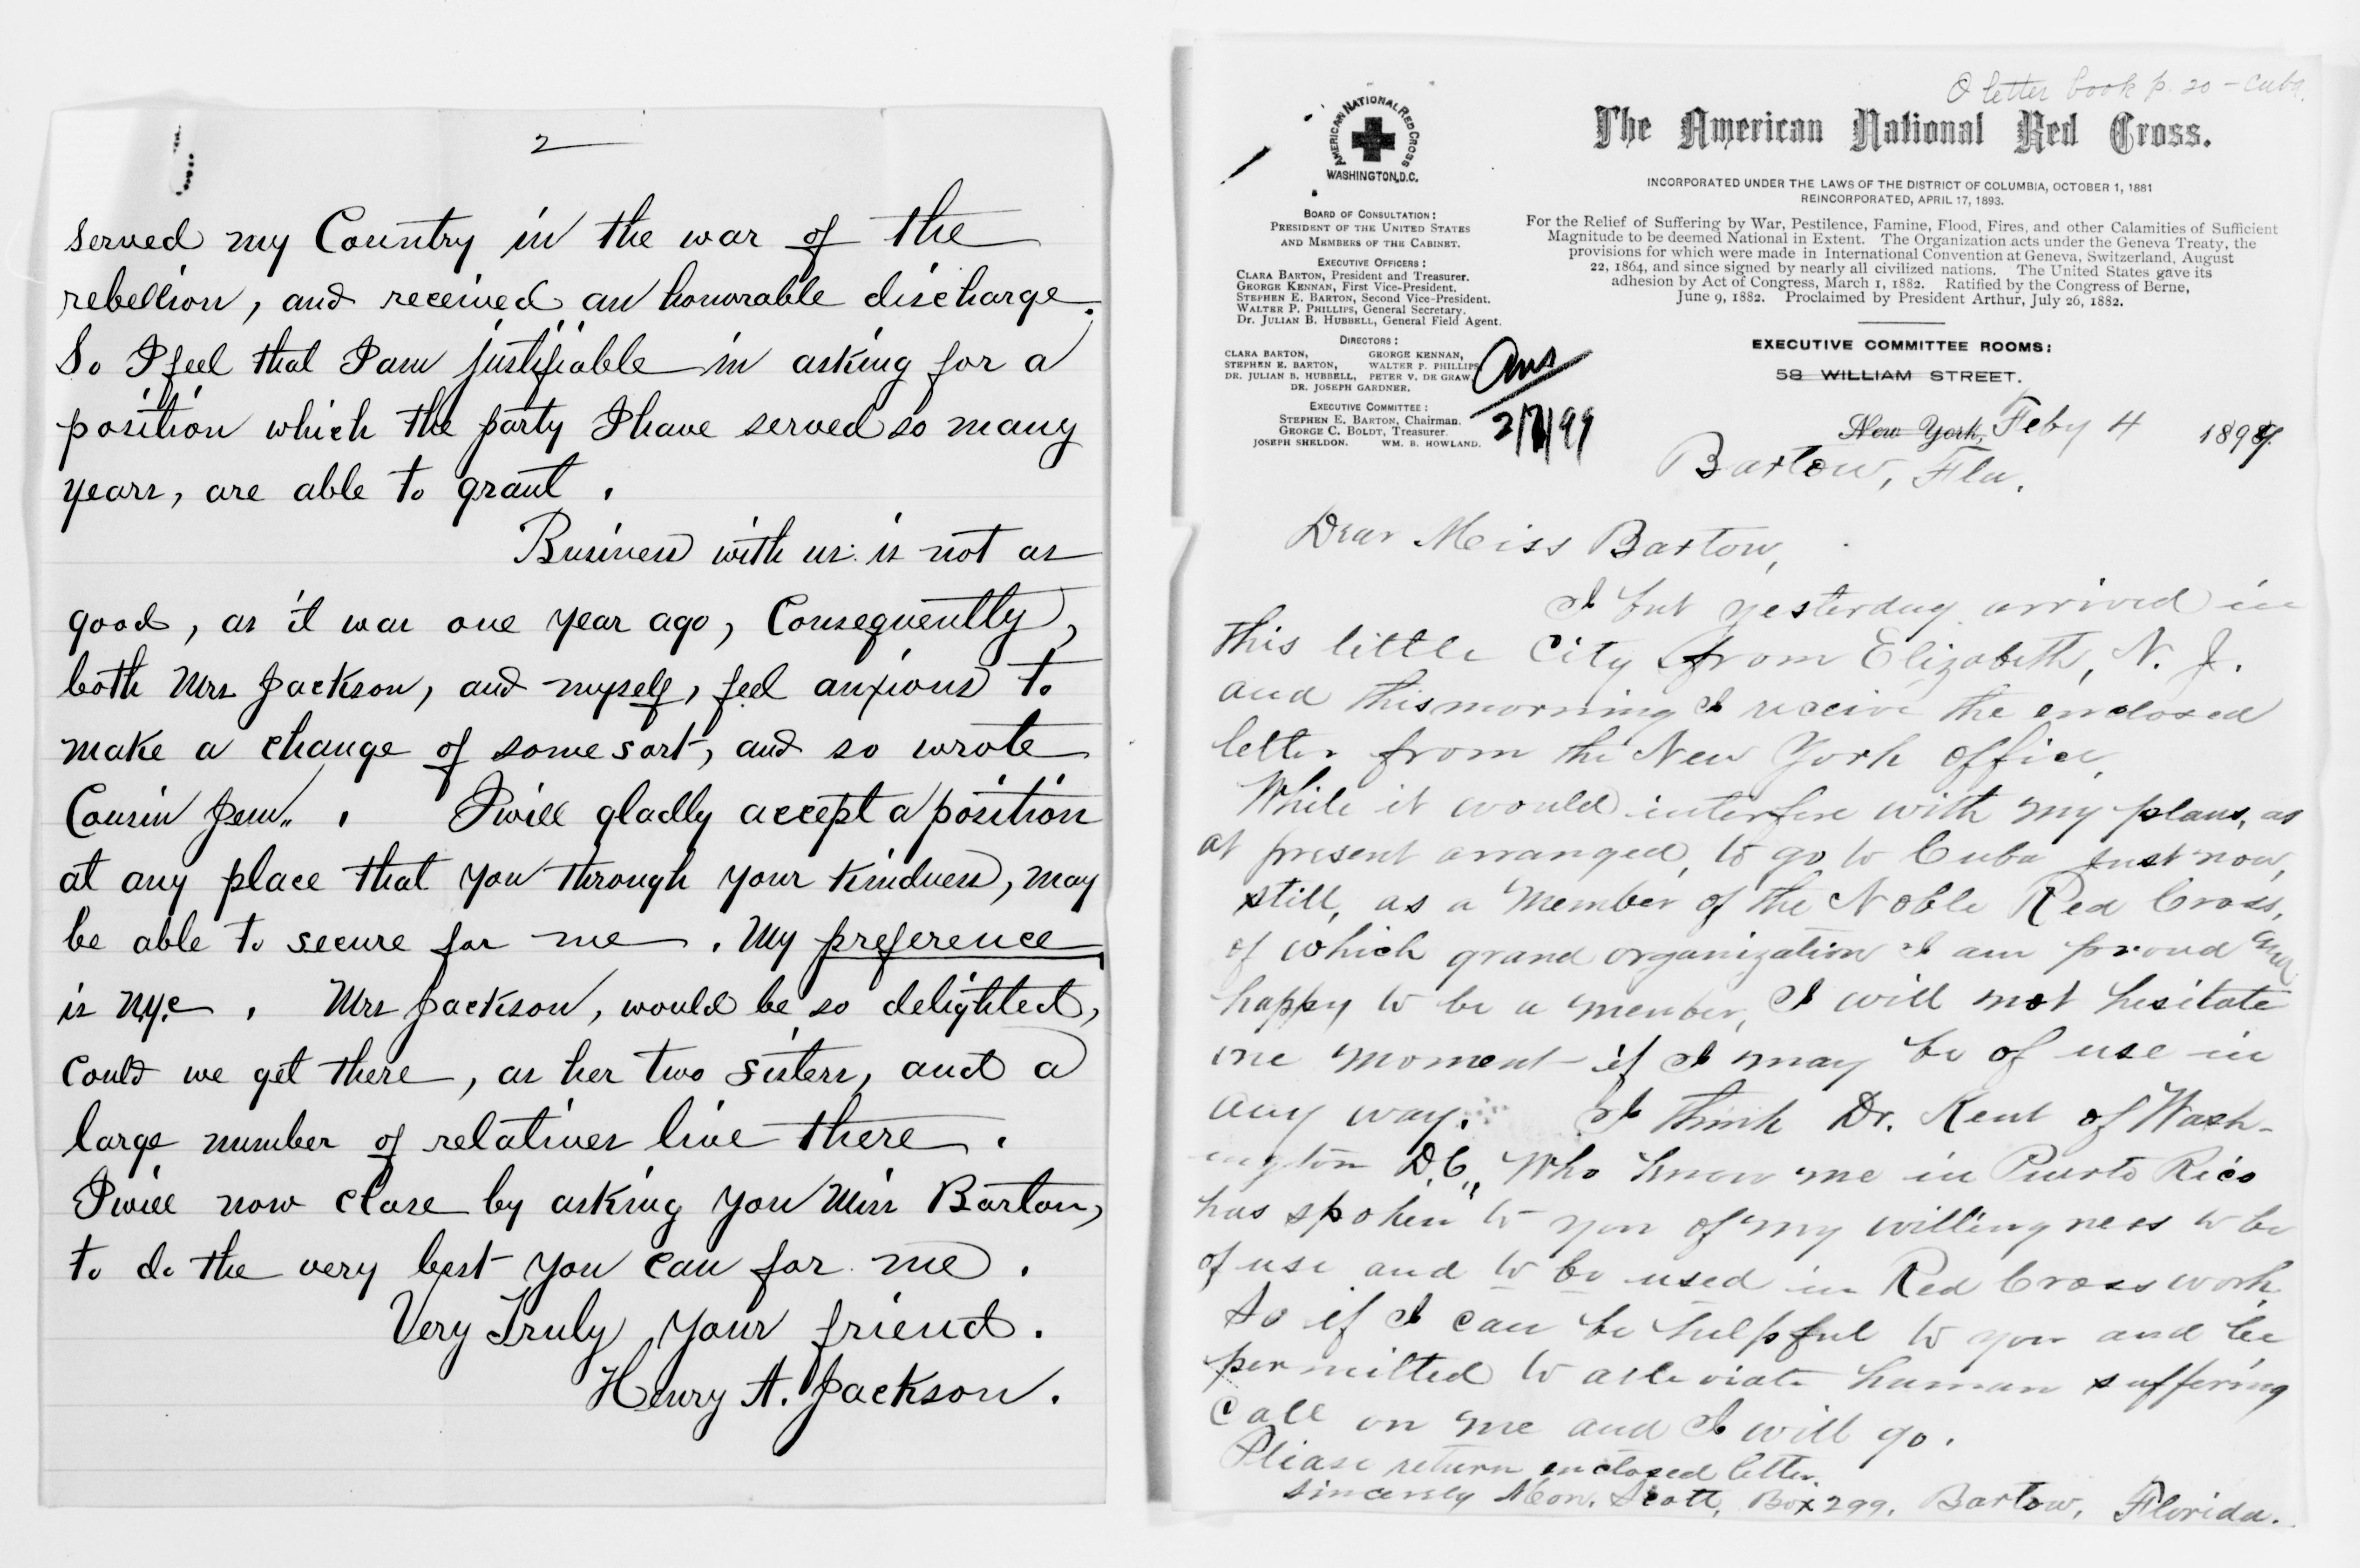 2
served my Country in the war of the
rebellion, and received an honorable discharge.
So I feel that I am justifiable in asking for a
position which the party I have served so many
years, are able to grant.
Business with us is not as
good, as it was one year ago, Consequently,
both Mrs Jackson, and myself, feel anxious to
make a change of some sort, and so wrote
Cousin Jem.
I will gladly accept a position
at any place that you through your kindness, may
be able to secure for me. My preference
is N.Y.C. Mrs Jackson, would be so delighted,
could we get there, as her two sisters, and a
large number of relatives live there.
I will now close by asking you Miss Barton,
to do the very best you can for me.
Very Truly Your friend.
Henry A. Jackson.
O letter book p. 20 - Cuba.
AMERICAN NATIONAL RED CROSS
WASHINGTON, D.C.
The American National Red Cross.
INCORPORATED UNDER THE LAWS OF THE DISTRICT OF COLUMBIA, OCTOBER 1, 1881
REINCORPORATED, APRIL 17, 1893.
For the Relief of Suffering by War, Pestilence, Famine, Flood, Fires, and other Calamities of Sufficient
Magnitude to be deemed National in Extent. The Organization acts under the Geneva Treaty, the
provisions for which were made in International Convention at Geneva, Switzerland, August
22, 1864, and since signed by nearly all civilized nations. The United States gave its
adhesion by Act of Congress, March 1, 1882. Ratified by the Congress of Berne,
June 9, 1882. Proclaimed by President Arthur, July 26, 1882.
BOARD OF CONSULTATION:
PRESIDENT OF THE UNITED STATES
AND MEMBERS OF THE CABINET.
EXECUTIVE OFFICERS:
CLARA BARTON, President and Treasurer.
GEORGE KENNAN, First Vice-President.
STEPHEN E. BARTON, Second Vice-President.
WALTER P. PHILLIPS, General Secretary.
Dr. JULIAN B. HUBBELL, General Field Agent.
DIRECTORS:
CLARA BARTON, GEORGE KENNAN,
STEPHEN E. BARTON, WALTER P. PHILLIPS,
DR. JULIAN B. HUBBELL, PETER V. DE GRAW,
DR. JOSEPH GARDNER.
EXECUTIVE COMMITTEE:
STEPHEN E. BARTON, Chairman.
GEORGE C. BOLDT, Treasurer.
JOSEPH SHELDON. WM. B. HOWLAND.
Ans
2/7/99
EXECUTIVE COMMITTEE ROOMS:
58 WILLIAM STREET.
New York, Feby 4 1899.
Bartow, Fla.
Dear Miss Bartow,
I but yesterday arrived in
this little City from Elizabeth, N. J.
and this morning I receive the enclosed
letter from the New York office.
While it would interfere with my plans, as
at present arranged, to go to Cuba just now,
still, as a member of the Noble Red Cross,
of which grand organization I am proud and
happy to be a member, I will not hesitate
one moment if I may be of use in
any way. I think Dr. Kent of Wash-
ington D.C., who know me in Puerto Rico
has spoken to you of my willingness to be
of use and to be used in Red Cross work.
So if I can be helpful to you and be
permitted to alleviate human suffering
Call on me and I will go.
Please return enclosed letter.
Sincerely Mon. Scott, Box 299, Bartow, Florida.